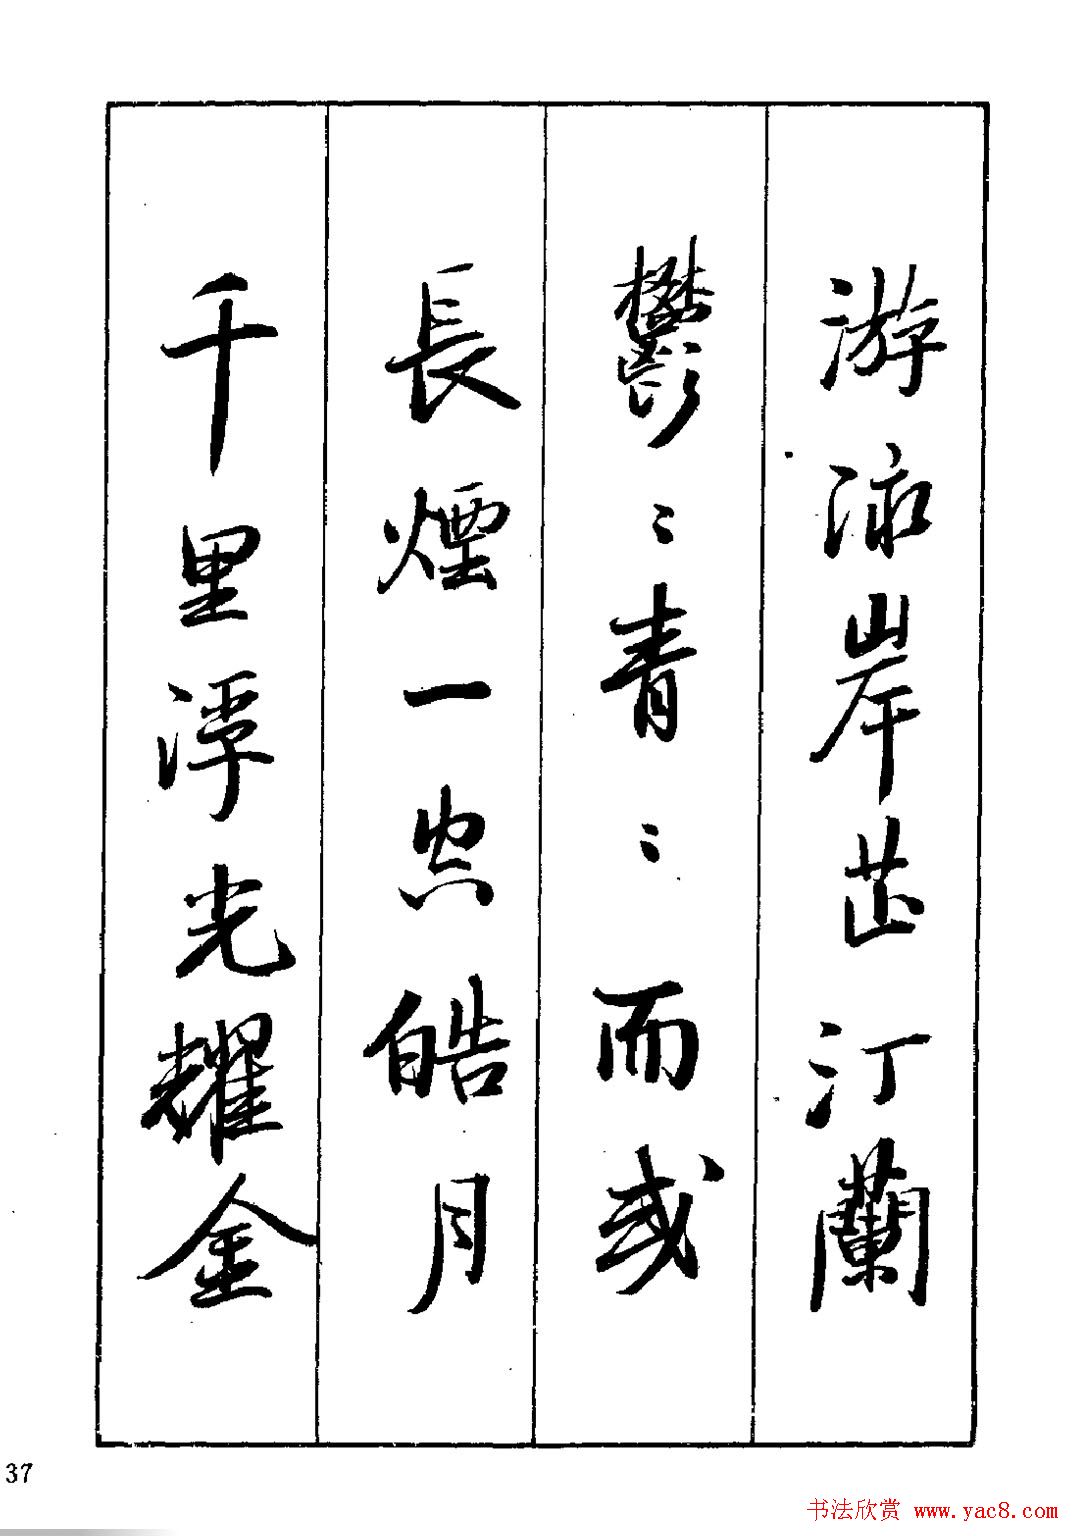 游泳岸芷汀蘭
鬱〻青〻而或
長煙一空皓月
千里浮光耀金
37
书法欣赏 www.yac8.com